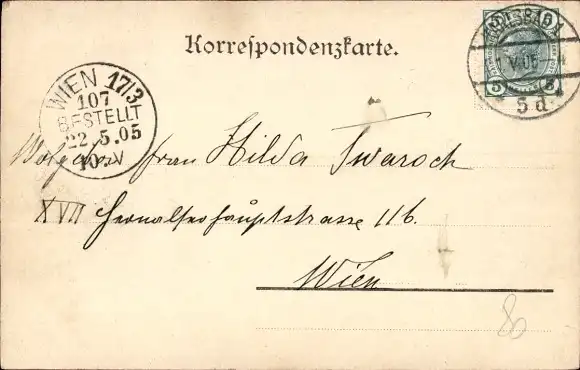 Korrespondenzkarte.
WIEN 17/3
107
BESTELLT
22.5.05
10-V
5 5
5 d
Wolgeb. Frau Hilda Twaroch
XVII Hernalserhauptstrasse 116.
Wien
80